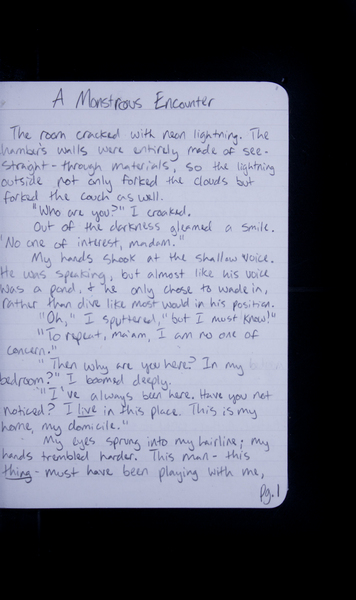 A Monstrous Encounter
The room cracked with neon lightning. The
hamber's walls were entirely made of see-
straight-through materials, so the lightning
outside not only forked the clouds but
forked the couch as well.
"Who are you?" I croaked.
Out of the darkness gleamed a smile.
"No one of interest, madam."
My hands shook at the shallow voice.
He was speaking, but almost like his voice
was a pond, & he only chose to wade in,
rather than dive like most would in his position.
"Oh," I sputtered, "but I must know!"
"To repeat, ma'am, I am no one of
concern."
"Then why are you here? In my
bedroom?" I boomed deeply.
"I've always been here. Have you not
noticed? I live in this place. This is my
home, my domicile."
My eyes sprung into my hairline; my
hands trembled harder. This man - this
thing - must have been playing with me,
Pg. 1